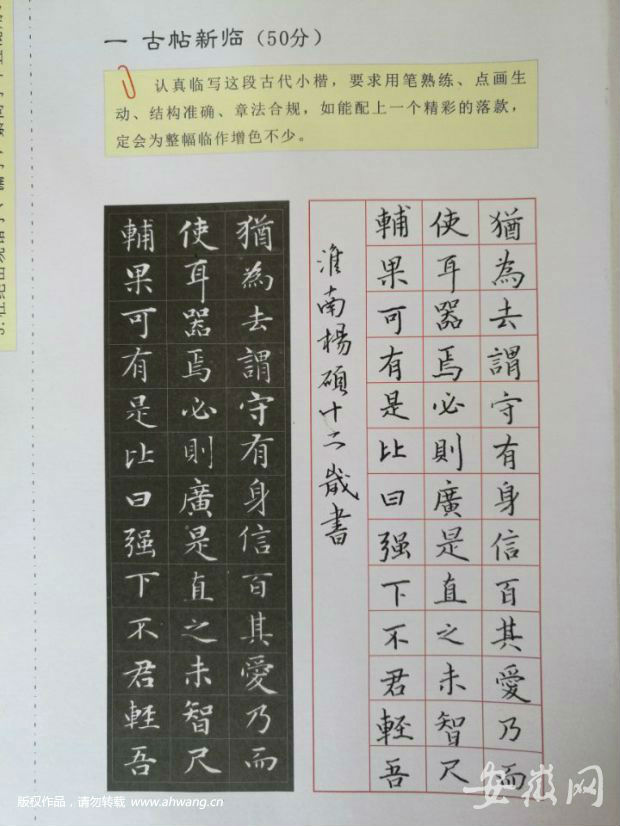 一 古帖新临（50分）
认真临写这段古代小楷，要求用笔熟练、点画生
动、结构准确、章法合规，如能配上一个精彩的落款，
定会为整幅临作增色不少。
猶為去謂守有身信百其愛乃而
使耳器焉必則廣是直之未智尺
輔果可有是比曰强下不君輕吾
猶為去謂守有身信百其愛乃而
使耳器焉必則廣是直之未智尺
輔果可有是比曰强下不君輕吾
淮南楊碩十二歲書
版权作品，请勿转载 www.ahwang.cn
安徽网